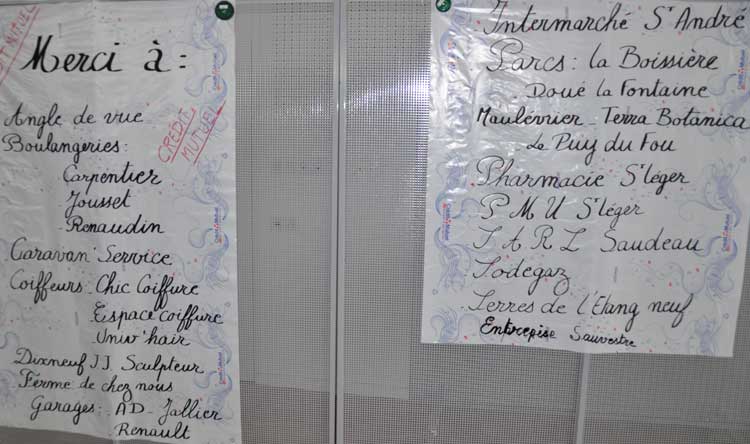 Merci à :
CREDIT
MUTUEL
Angle de vue
Boulangeries :
Carpentier
Jousset
Renaudin
Caravan' Service
Coiffeurs : Chic Coiffure
Espace coiffure
Univ'hair
Dixneuf J J Sculpteur
Ferme de chez nous
Garages : AD - Jallier
Renault
Intermarché St André
Parcs : La Boissière
Doué la Fontaine
Maulévrier - Terra Botanica
Le Puy du Fou
Pharmacie St léger
P M U St léger
S A R L Saudeau
Sodegaz
Serres de l'Etang neuf
Entrepise Sauvestre